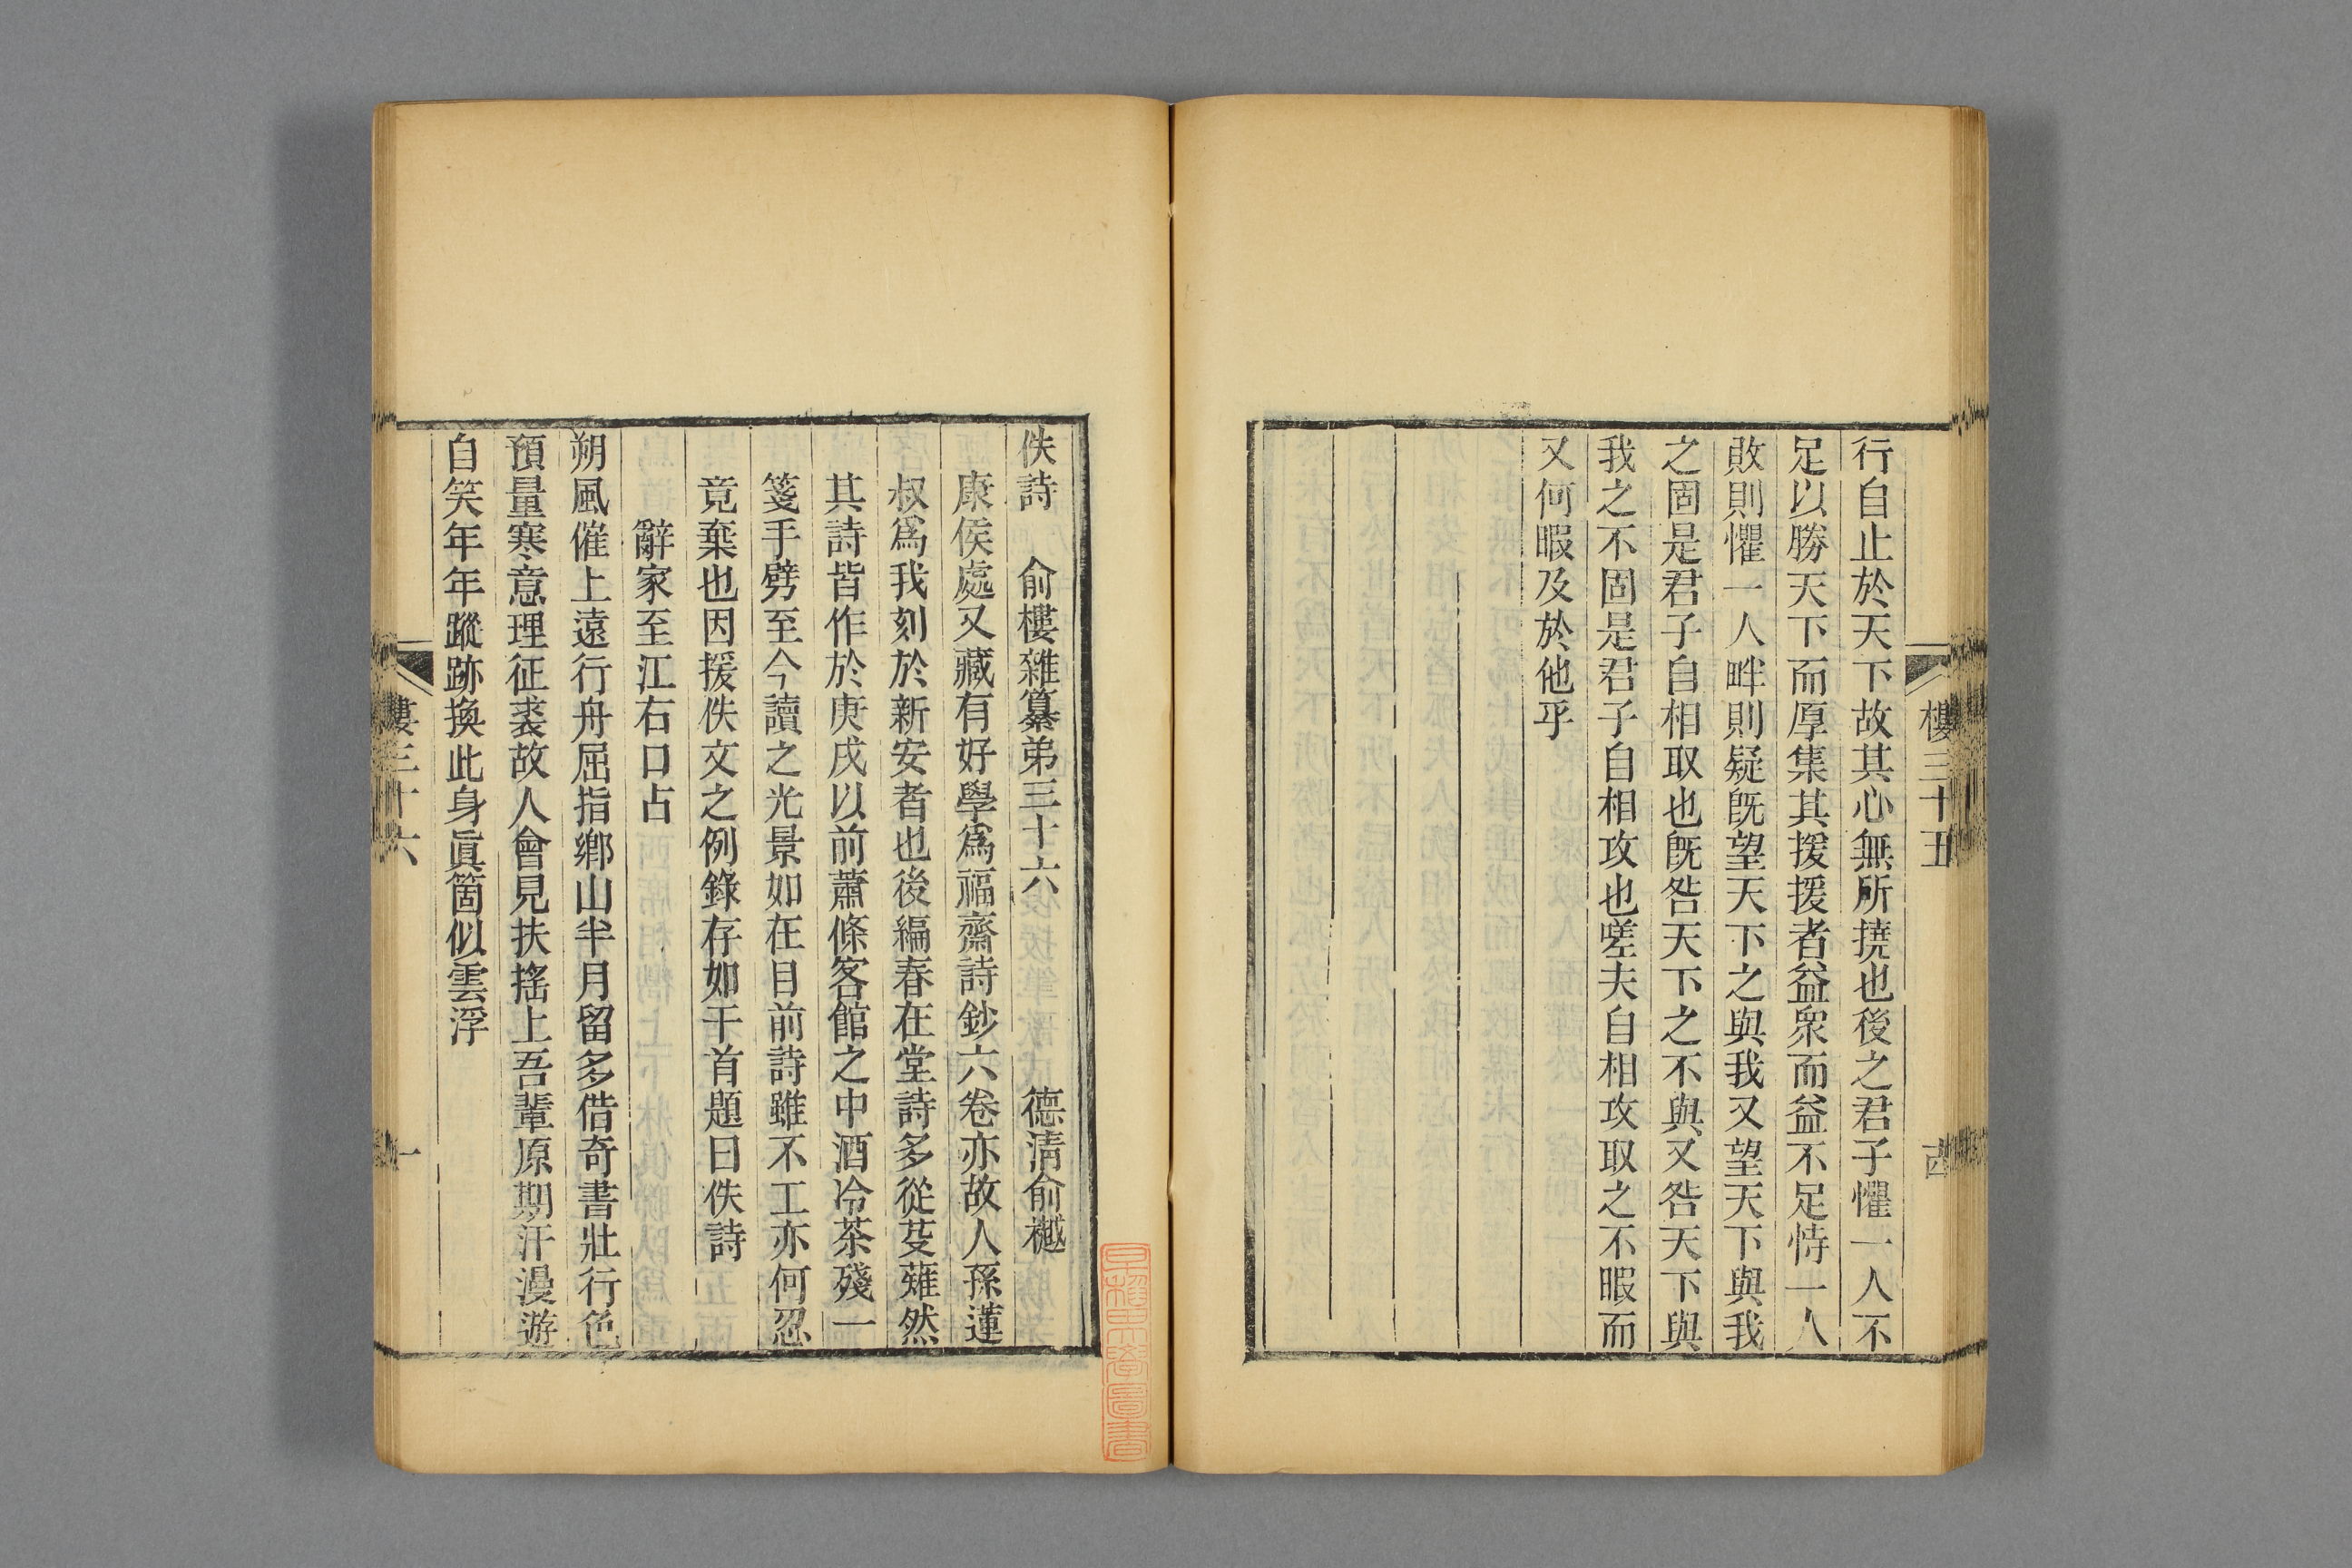 樓三十五
行自止於天下故其心無所撓也後之君子懼一人不
足以勝天下而厚集其援援者益眾而益不足恃一人
敗則懼一人畔則疑旣望天下之與我又望天下與我
之固是君子自相取也旣咎天下之不與又咎天下與
我之不固是君子自相攻也嗟夫自相攻取之不暇而
又何暇及於他乎
佚詩　俞樓雜纂弟三十六　德淸俞樾
康侯處又藏有好學爲福齋詩鈔六卷亦故人孫蓮
叔爲我刻於新安者也後編春在堂詩多從芟薙然
其詩皆作於庚戌以前蕭條客館之中酒冷茶殘一
箋手劈至今讀之光景如在目前詩雖不工亦何忍
竟棄也因援佚文之例錄存如干首題曰佚詩
辭家至江右口占
朔風催上遠行舟屈指鄉山半月留多借奇書壯行色
預量寒意理征裘故人會見扶搖上吾輩原期汗漫遊
自笑年年蹤跡換此身眞箇似雲浮
樓三十六
一
早稻田大學圖書